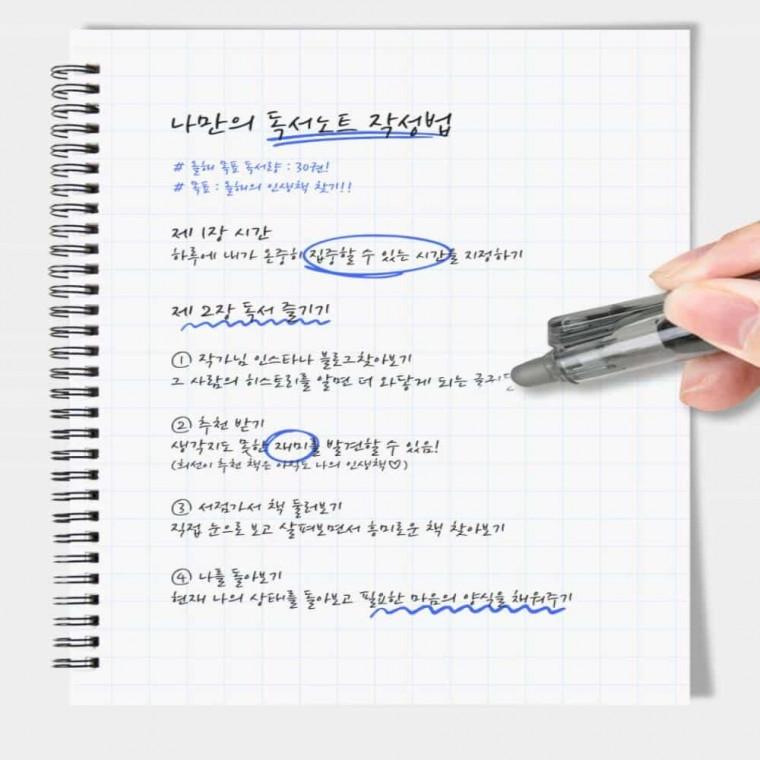 나만의 독서노트 작성법
# 올해 목표 독서량 : 30권!
# 목표 : 올해의 인생책 찾기!!
제 1장 시간
하루에 내가 온중히 집중할 수 있는 시간을 지정하기
제 2장 독서 즐기기
① 작가님 인스타나 블로그찾아보기
그 사람의 히스토리를 알면 더 와닿게 되는
② 추천 받기
생각지도 못한 재미를 발견할 수 있음!
(희선이 추천 책은 아직도 나의 인생책♡)
③ 서점가서 책 둘러보기
직접 눈으로 보고 살펴보면서 흥미로운 책 찾아보기
④ 나를 돌아보기
현재 나의 상태를 돌아보고 필요한 마음의 양식을 채워주기